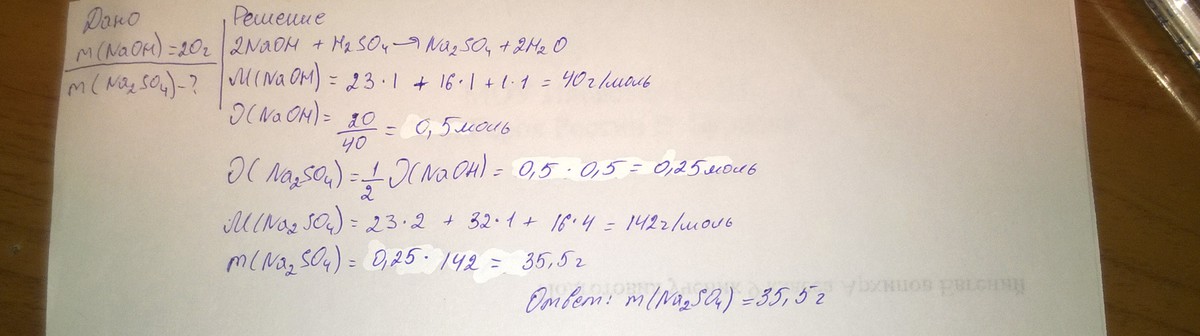 Дано
m(NaOH)=20г
m(Na₂SO₄)-?
Решение
2NaOH + H₂SO₄→Na₂SO₄ + 2H₂O
M(NaOH) = 23·1 + 16·1 + 1·1 = 40г/моль
ν(NaOH) = 20/40 = 0,5моль
ν(Na₂SO₄) = 1/2 ν(NaOH) = 0,5 · 0,5 = 0,25моль
M(Na₂SO₄) = 23·2 + 32·1 + 16·4 = 142г/моль
m(Na₂SO₄) = 0,25· 142 = 35,5г
Ответ: m(Na₂SO₄) = 35,5г
ученик Архипов Евгений